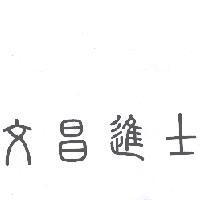 文昌進士